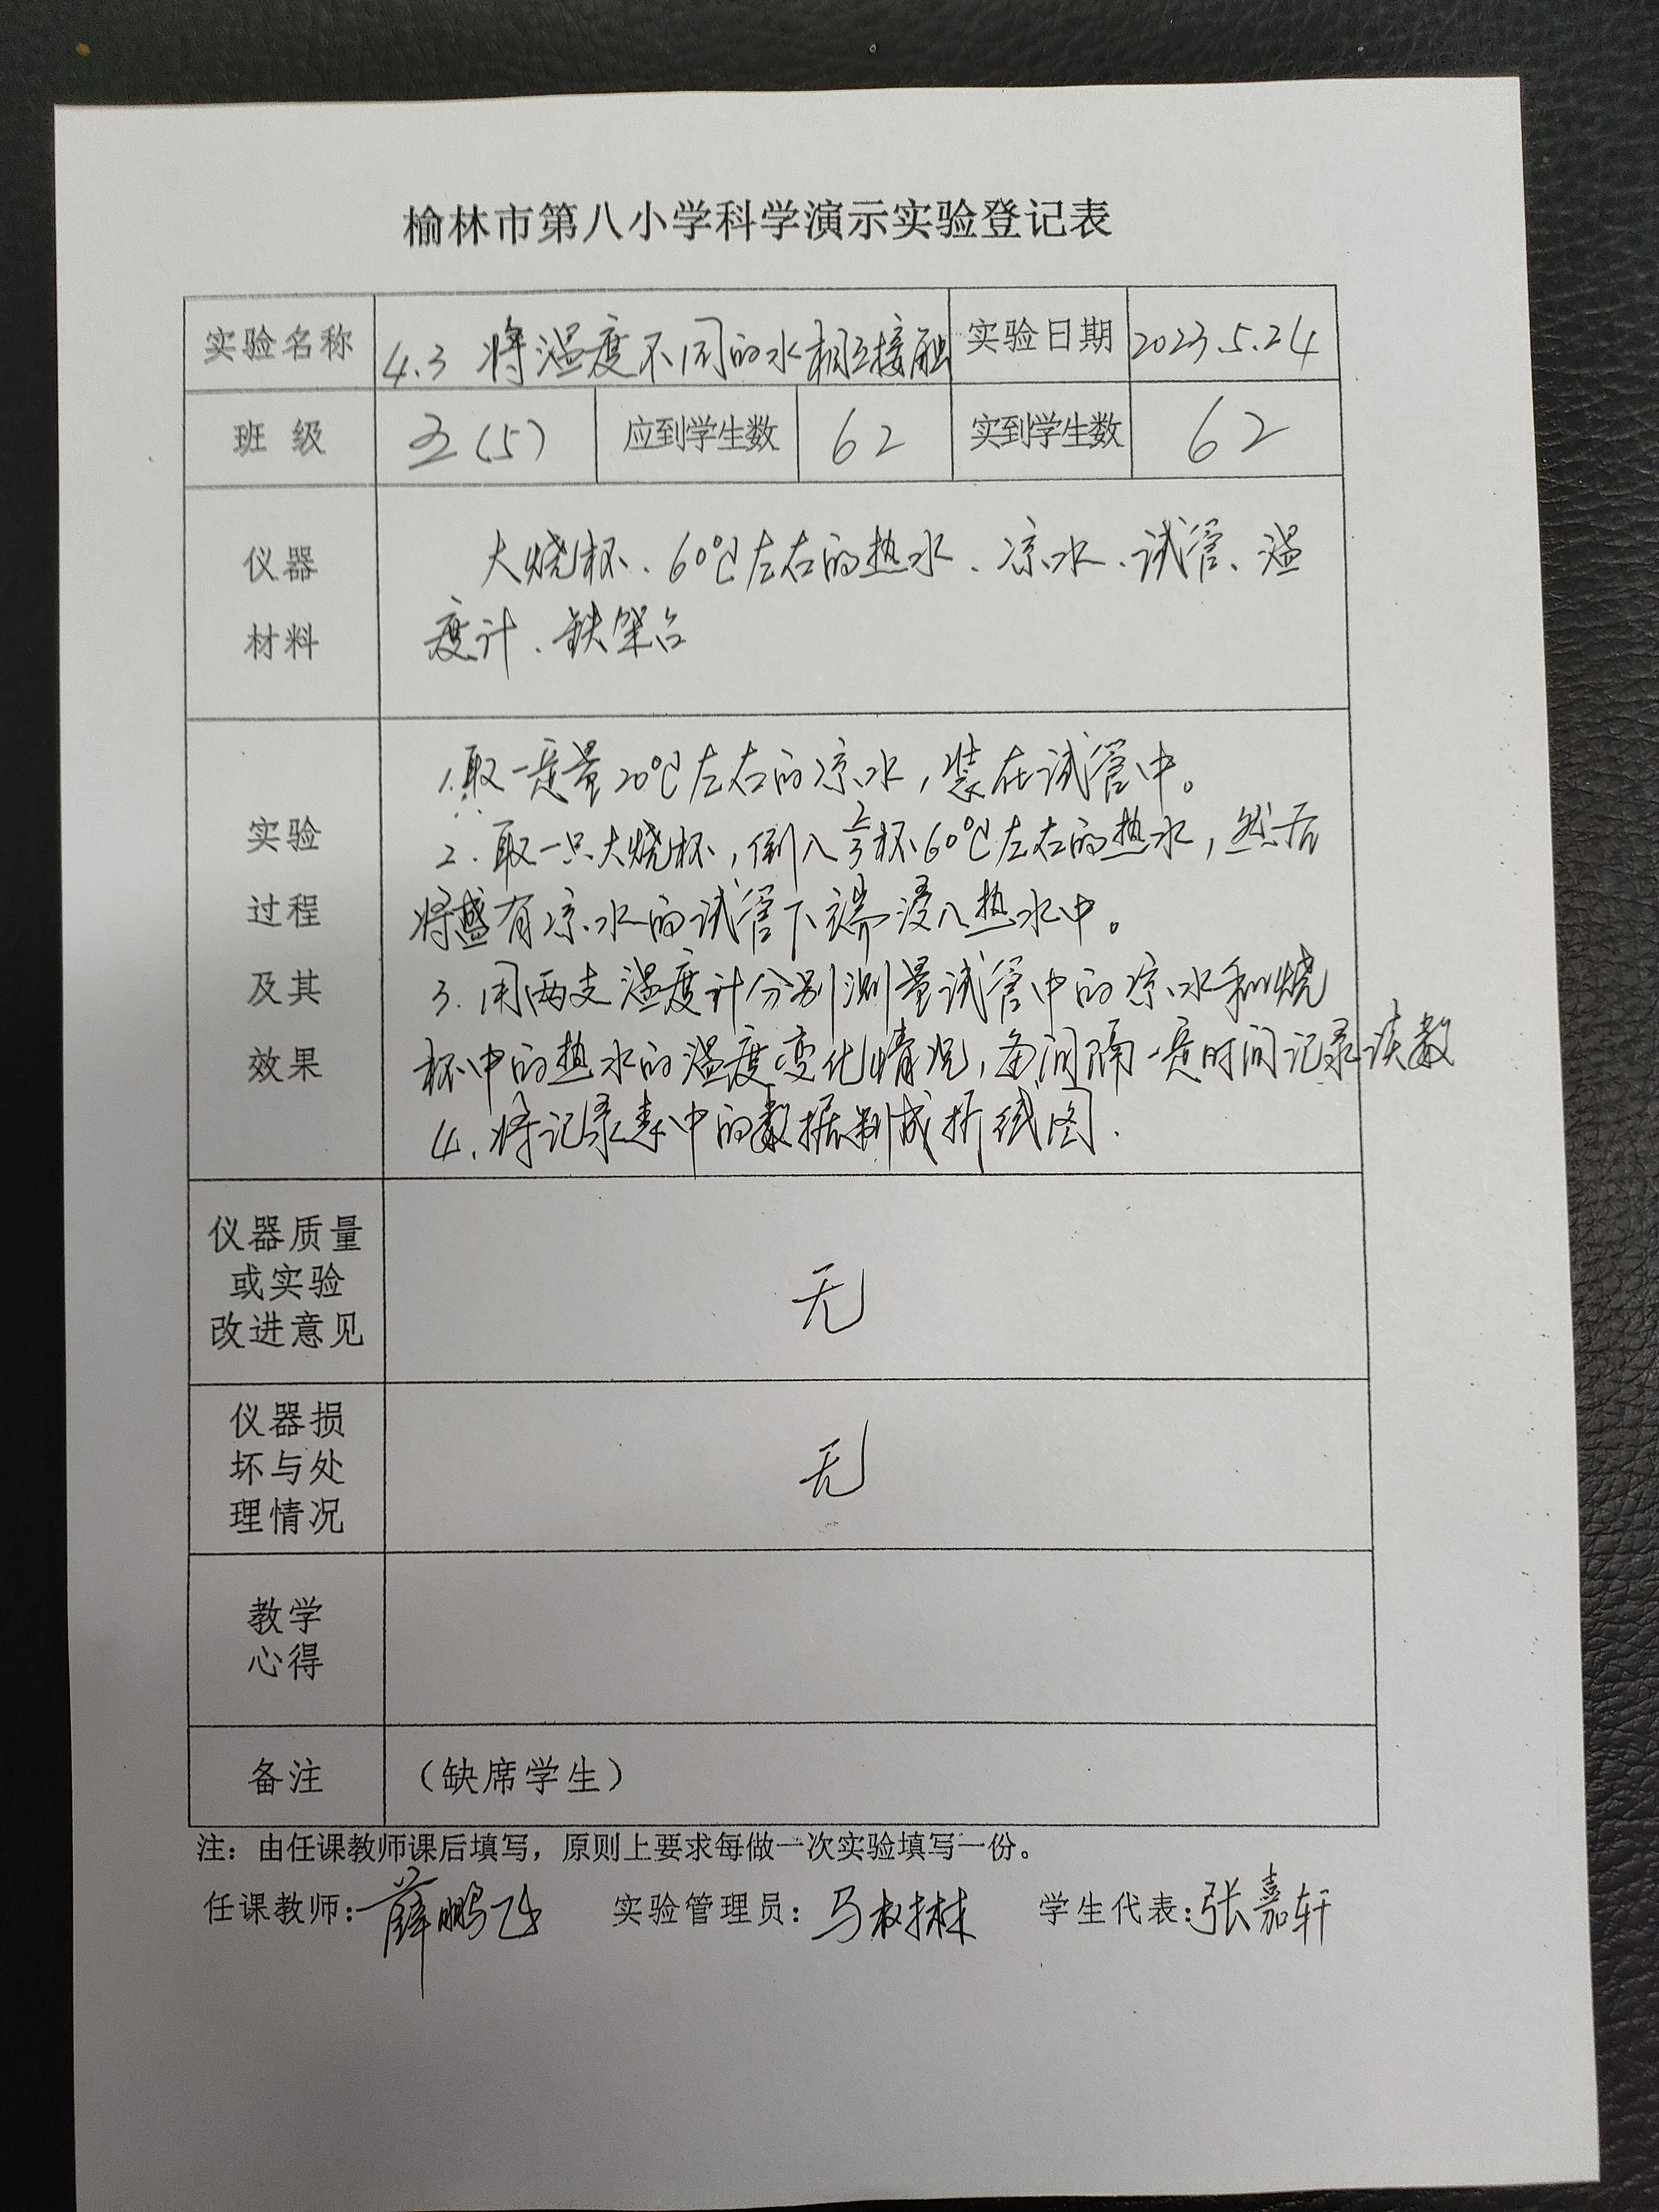 榆林市第八小学科学演示实验登记表
实验名称 4.3 将温度不同的水相互接触 实验日期 2023.5.24
班级 五(5) 应到学生数 62 实到学生数 62
仪器
材料
大烧杯、60℃左右的热水、凉水、试管、温
度计、铁架台
实验
过程
及其
效果
1.取一定量20℃左右的凉水,装在试管中。
2.取一只大烧杯,倒入2/3杯60℃左右的热水,然后
将盛有凉水的试管下端浸入热水中。
3.用两支温度计分别测量试管中的凉水和烧
杯中的热水的温度变化情况,每间隔一定时间记录读数
4.将记录表中的数据制成折线图.
仪器质量
或实验
改进意见
无
仪器损
坏与处
理情况
无
教学
心得
备注 (缺席学生)
注:由任课教师课后填写,原则上要求每做一次实验填写一份。
任课教师:薛鹏飞 实验管理员:马 学生代表:张嘉轩